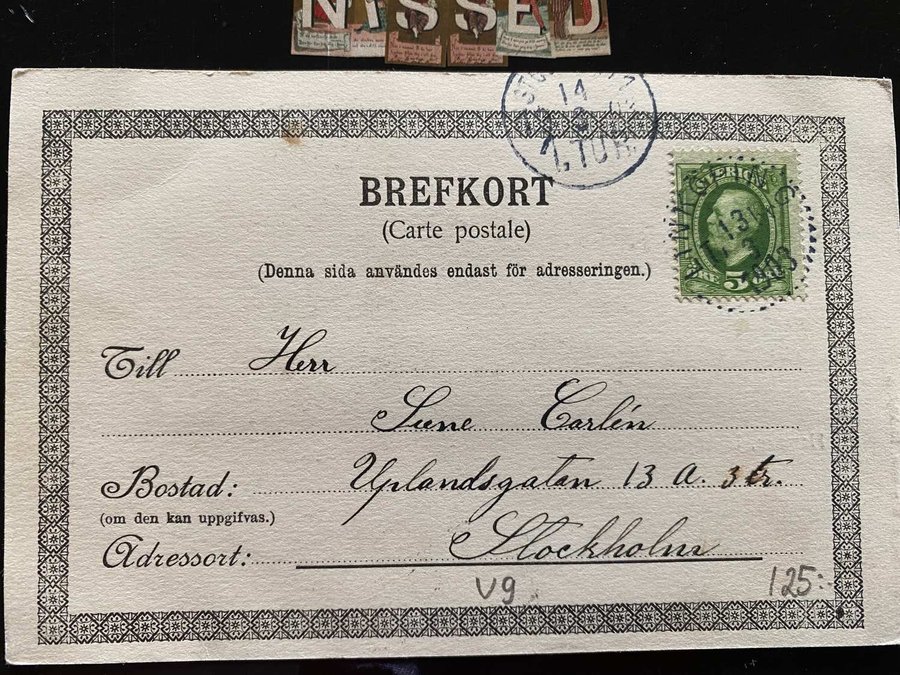 NISSED
14
3
1.TUR.
BREFKORT
(Carte postale)
(Denna sida användes endast för adresseringen.)
1903
5
Till Herr
Sune Carlén
Bostad: Uplandsgatan 13 A. 3 tr.
(om den kan uppgifvas.)
Adressort: Stockholm
V9
125:-